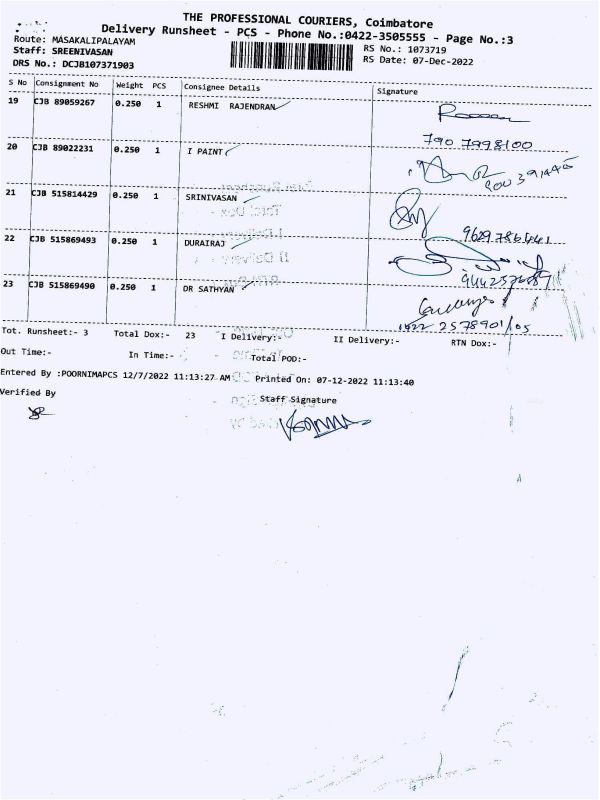 THE PROFESSIONAL COURIERS, Coimbatore
Delivery Runsheet - PCS - Phone No.:0422-3505555 - Page No.:3
Route: MASAKALIPALAYAM
RS No.: 1073719
Staff: SREENIVASAN
RS Date: 07-Dec-2022
DRS No.: DCJB107371903
S No Consignment No Weight PCS Consignee Details Signature
19 CJB 89059267 0.250 1 RESHMI RAJENDRAN
790 7998100
20 CJB 89022231 0.250 1 I PAINT
21 CJB 515814429 0.250 1 SRINIVASAN
22 CJB 515869493 0.250 1 DURAIRAJ
23 CJB 515869490 0.250 1 DR SATHYAN
Tot. Runsheet:- 3 Total Dox:- 23 I Delivery:- II Delivery:- RTN Dox:-
Out Time:- In Time:- Total POD:-
Entered By :POORNIMAPCS 12/7/2022 11:13:27 AM Printed On: 07-12-2022 11:13:40
Verified By Staff Signature